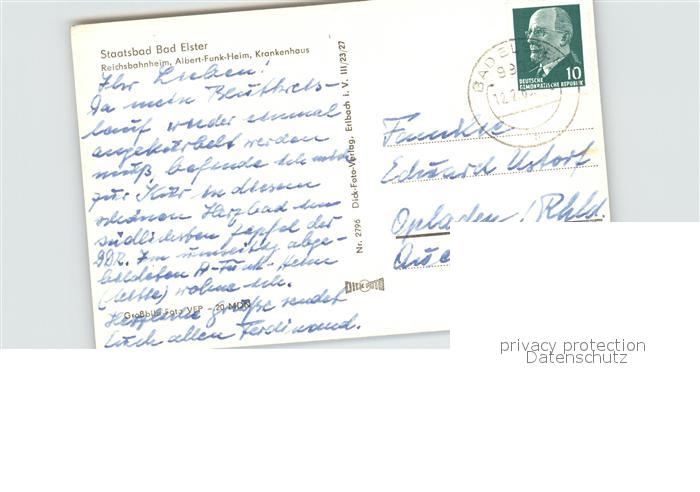 Staatsbad Bad Elster
Reichsbahnheim, Albert-Funk-Heim, Krankenhaus
Ihr Lieben!
Da mein Blutkreis-
lauf wieder einmal
angekurbelt werden
muß, befinde ich mich
zur Kur in diesem
schönen Herzbad im
südlichsten Zipfel der
DDR. Im umseitig abge-
bildeten A-Funk-Heim
wohne ich.
Großbild-Foto VEP - 20 MDN
Herzliche Grüße sendet
Euch allen Ferdinand.
Nr. 2796 Dick-Foto-Verlag, Erlbach i. V. III/23/27
DICK FOTO
BAD EL
DEUTSCHE
DEMOKRATISCHE REPUBLIK
10
Familie
Eduard Ustorf
Opladen/Rhld.
privacy protection
Datenschutz